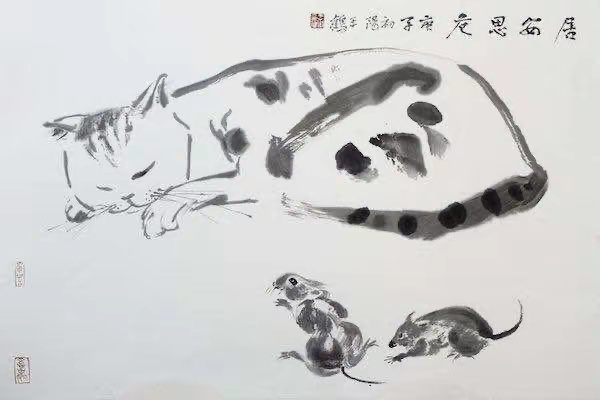 居安思危 庚子初陽